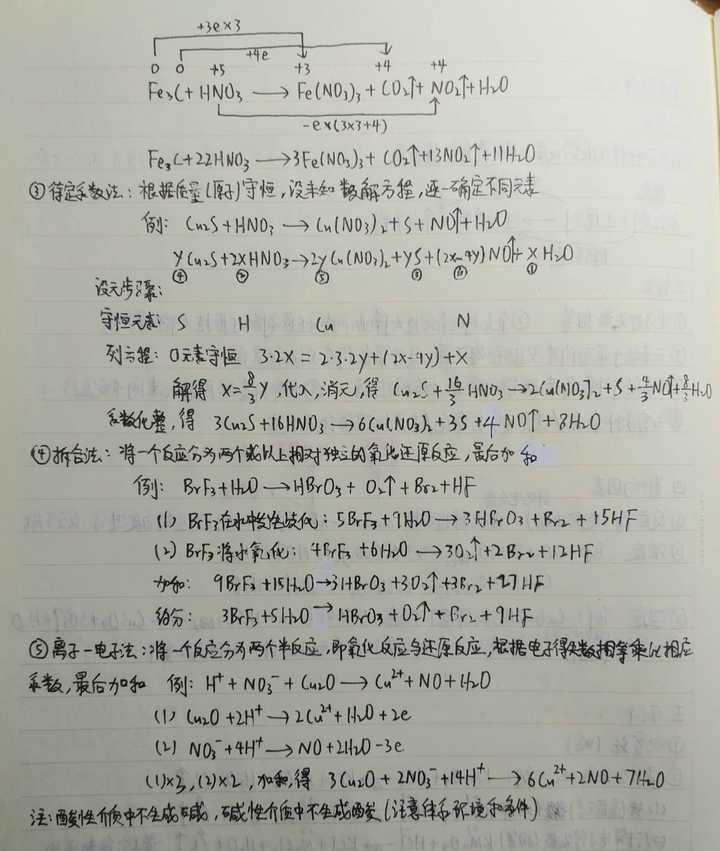 +3e×3
+4e
0 0 +5 +3 +4 +4
Fe₃C + HNO₃ → Fe(NO₃)₃ + CO₂↑ + NO₂↑ + H₂O
-e×(3×3+4)
Fe₃C + 22HNO₃ → 3Fe(NO₃)₃ + CO₂↑ + 13NO₂↑ + 11H₂O
③待定系数法：根据质量(原子)守恒，设未知数解方程，逐一确定不同元素
例： Cu₂S + HNO₃ → Cu(NO₃)₂ + S + NO↑ + H₂O
yCu₂S + 2xHNO₃ → 2yCu(NO₃)₂ + yS + (2x-4y)NO↑ + xH₂O
④ ② ⑤ ③ ⑥ ①
设元步骤：
守恒元素： S H Cu N
列方程： O元素守恒 3·2x = 2·3·2y + (2x-4y) + x
解得 x=8/3y，代入，消元，得 Cu₂S + 16/3HNO₃ → 2Cu(NO₃)₂ + S + 4/3NO↑ + 8/3H₂O
系数化整，得 3Cu₂S + 16HNO₃ → 6Cu(NO₃)₂ + 3S + 4NO↑ + 8H₂O
④拆合法：将一个反应分为两个或以上相对独立的氧化还原反应，最后加和
例： BrF₃ + H₂O → HBrO₃ + O₂↑ + Br₂ + HF
(1) BrF₃在水中发生歧化： 5BrF₃ + 9H₂O → 3HBrO₃ + Br₂ + 15HF
(2) BrF₃将水氧化： 4BrF₃ + 6H₂O → 3O₂↑ + 2Br₂ + 12HF
加和： 9BrF₃ + 15H₂O → 3HBrO₃ + 3O₂↑ + 3Br₂ + 27HF
约分： 3BrF₃ + 5H₂O → HBrO₃ + O₂↑ + Br₂ + 9HF
⑤离子一电子法：将一个反应分为两个半反应，即氧化反应与还原反应，根据电子得失数相等乘以相应
系数，最后加和 例： H⁺ + NO₃⁻ + Cu₂O → Cu²⁺ + NO + H₂O
(1) Cu₂O + 2H⁺ → 2Cu²⁺ + H₂O + 2e
(2) NO₃⁻ + 4H⁺ → NO + 2H₂O - 3e
(1)×3，(2)×2，加和，得 3Cu₂O + 2NO₃⁻ + 14H⁺ → 6Cu²⁺ + 2NO + 7H₂O
注：酸性介质中不生成碱，碱性介质中不生成酸(注意体系环境和条件)